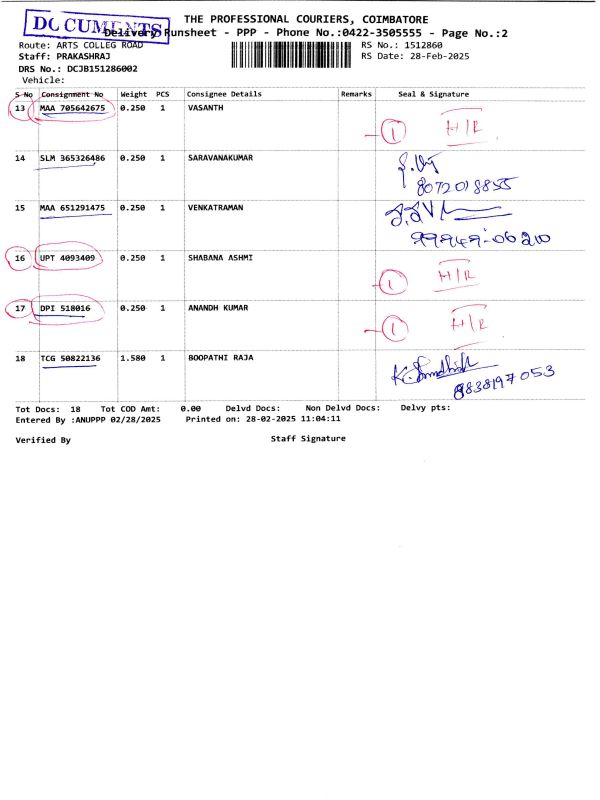 DOCUMENTS
THE PROFESSIONAL COURIERS, COIMBATORE
Delivery Runsheet - PPP - Phone No.:0422-3505555 - Page No.:2
Route: ARTS COLLEG ROAD RS No.: 1512860
Staff: PRAKASHRAJ RS Date: 28-Feb-2025
DRS No.: DCJB151286002
Vehicle:
S No Consignment No Weight PCS Consignee Details Remarks Seal & Signature
13 MAA 705642675 0.250 1 VASANTH 1 H/R
14 SLM 365326486 0.250 1 SARAVANAKUMAR
8072018855
15 MAA 651291475 0.250 1 VENKATRAMAN
99949-06210
16 UPT 4093409 0.250 1 SHABANA ASHMI 1 H/R
17 DPI 518016 0.250 1 ANANDH KUMAR 1 H/R
18 TCG 50822136 1.580 1 BOOPATHI RAJA
9838197053
Tot Docs: 18 Tot COD Amt: 0.00 Delvd Docs: Non Delvd Docs: Delvy pts:
Entered By :ANUPPP 02/28/2025 Printed on: 28-02-2025 11:04:11
Verified By Staff Signature